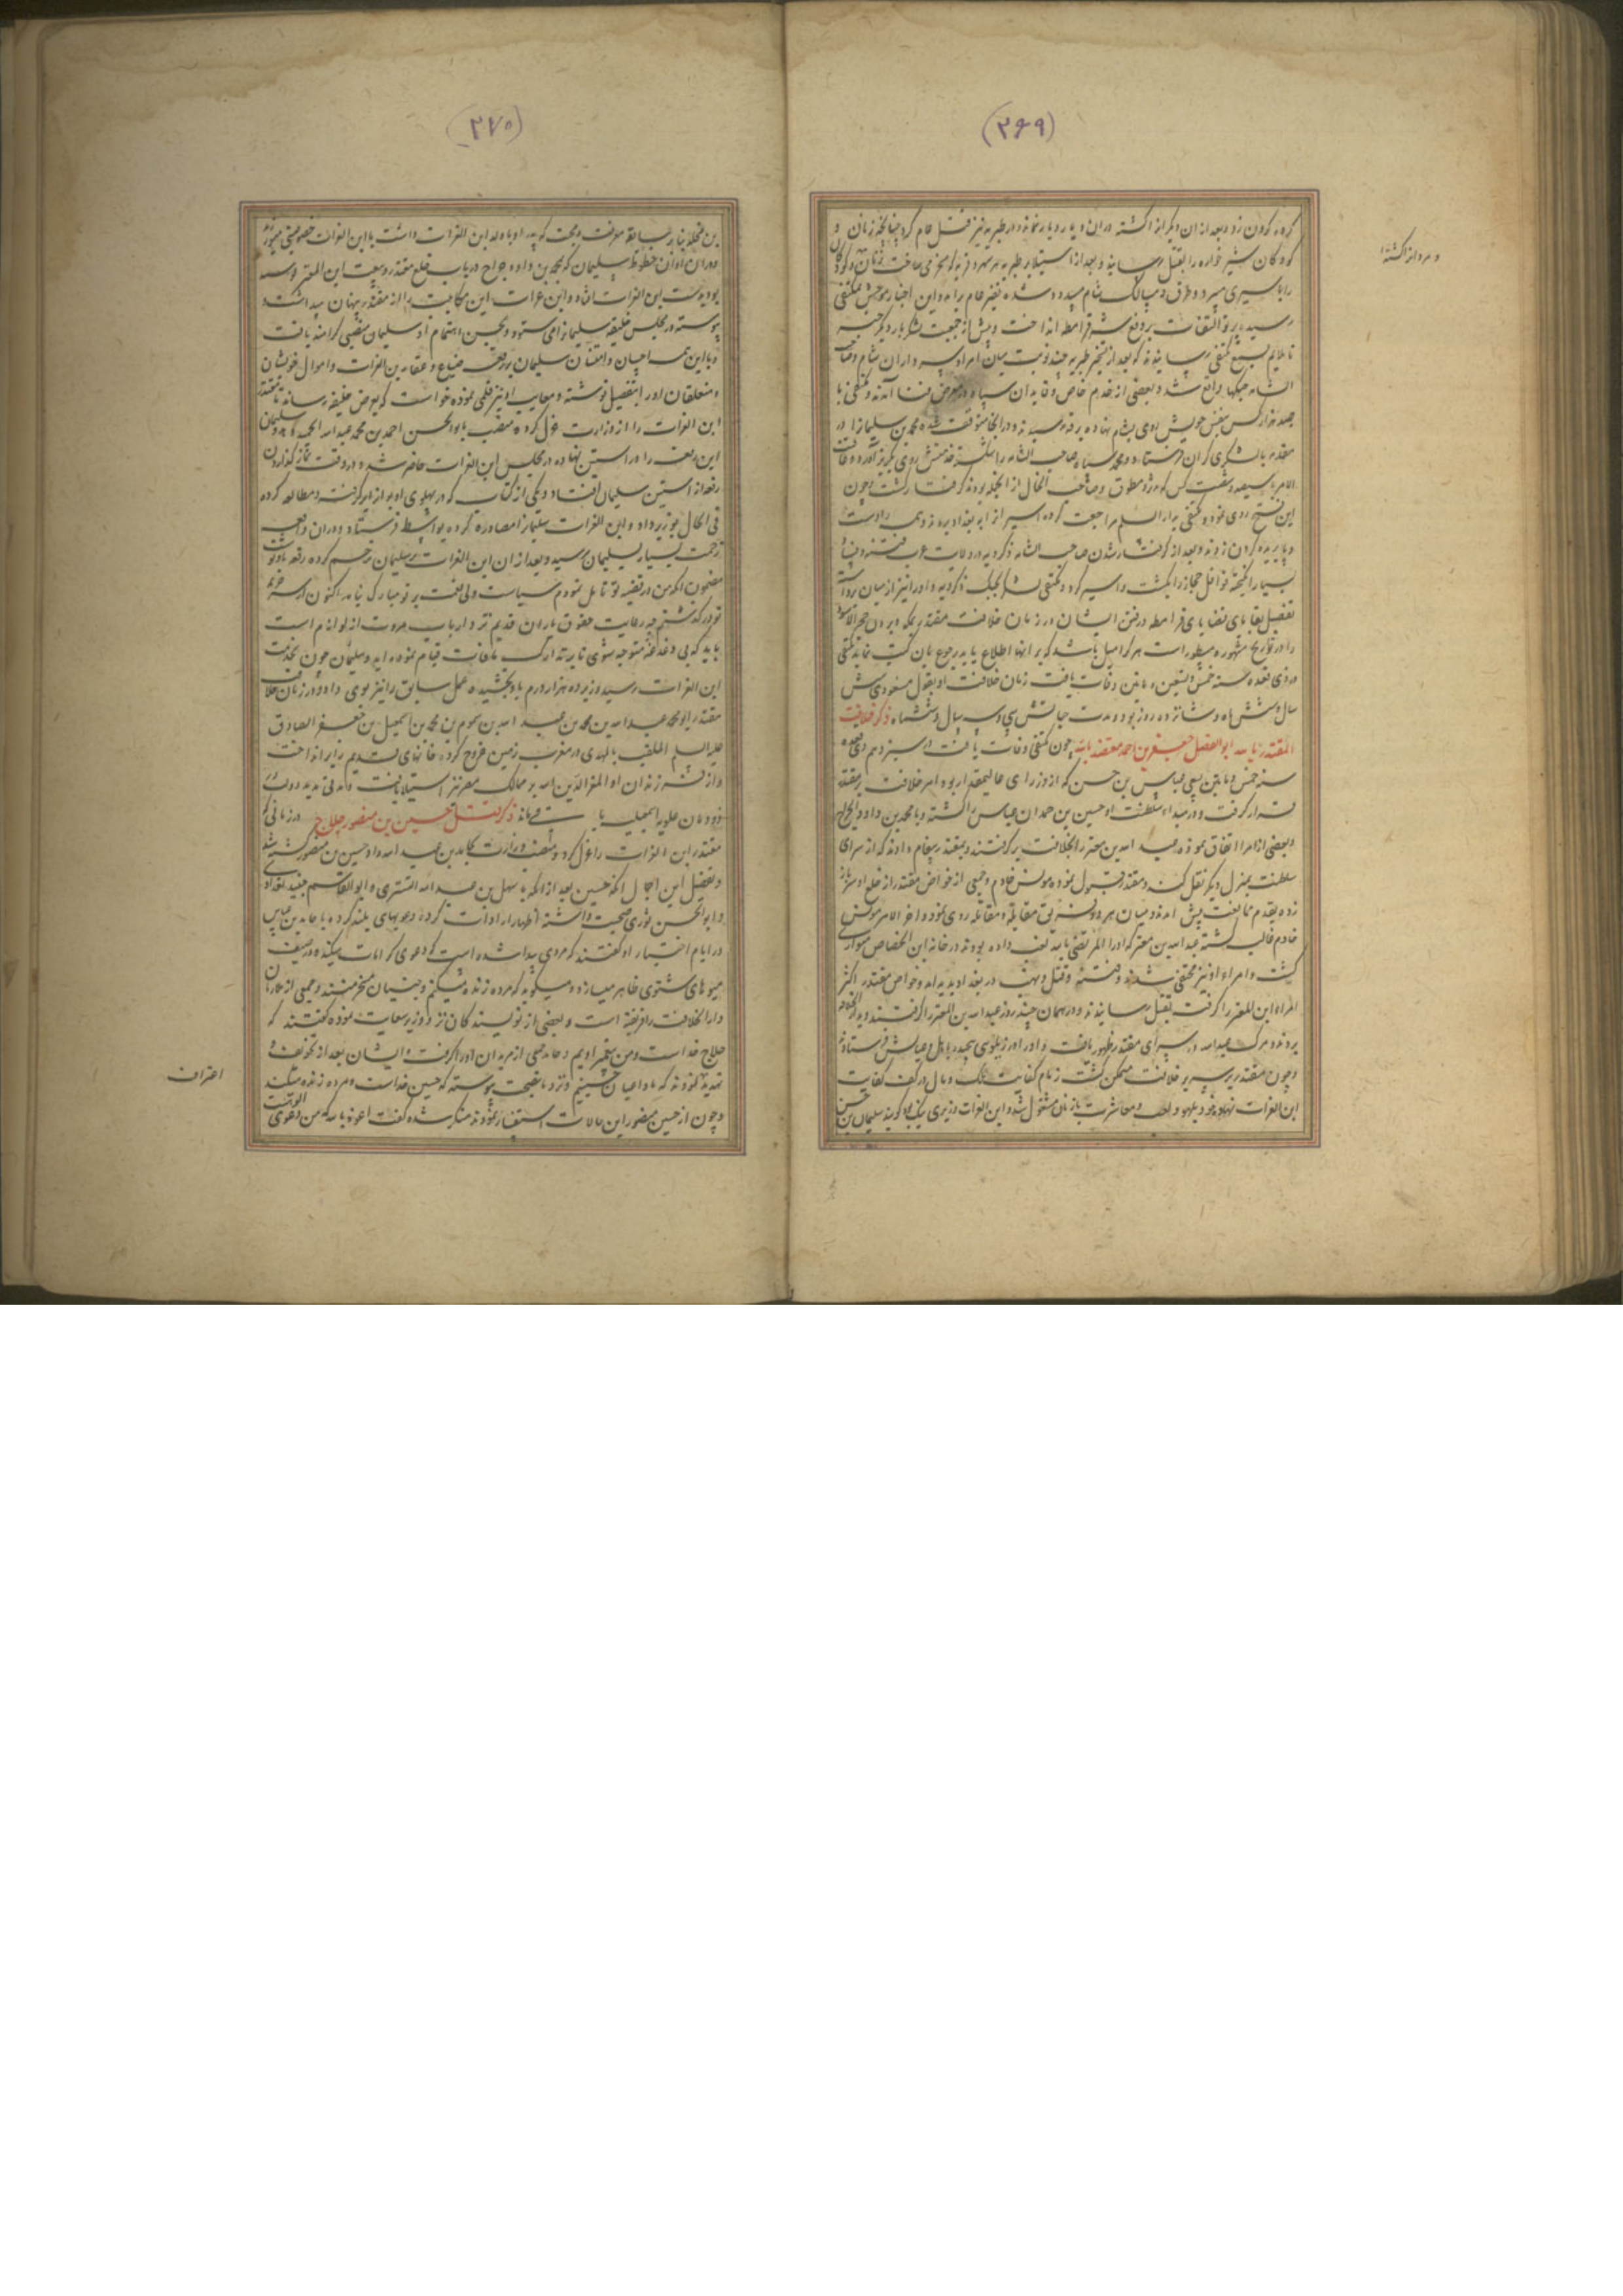 (۳۶۹)
کرده گردن زد و بعد از ان دیگرانرا کشته دران دیار دیار نماند و در طبریه نیز قتل عام کرد چنانچه زنان و
کودکان شیر خواره را بقتل رسانید و بعد از استیلا بر طبریه بهر شهر و قریه که میرفت زنان و کودکان
را باسیری میبرد و طرق و مسالک شام مسدود شده نفیر عام برآمد و این اخبار موحش بمکتفی
رسید پرتو التفات بر دفع شر قرامطه انداخت و پیش از جمعیت لشکر بار دیگر خبر
ناملایم بسمع مکتفی رسانیدند که بعد از تخریب طبریه چند نوبت میان امرا و سرداران شام و صاحب
الشامه جنگها واقع شد و بعضی از خدم خاص و قایدان سپاه در معرض فنا آمدند و مکتفی با
صد هزار کس بنفس خویش روی بشام نهاده برقه رسید و در انجا متوقف شده محمد بن سلیمانرا در
مقدمه با لشکری گران فرستاد و محمد سپاه صاحب الشامه را شکسته
الامر سیصد و شصت کس که مزدور مطوق و صاحب الخال از انجمله بودند گرفتار گشت و چون
این فتح روی نمود مکتفی بدار السلام مراجعت کرده اسیرانرا ببغداد بردند و همه را دست
و پا بریده گردن زدند و بعد از گرفتار شدن صاحب الشامه ذکرویه در ولایت عرب فتنه و فساد
بسیار انگیخته قوافل حجاز را بکشت و اسیر کرد و مکتفی لشکر بجنگ ذکرویه و او را نیز از میان برداشته
تفصیل بقایای قضایای قرامطه و رفتن ایشان در زمان خلافت مقتدر بمکه و بردن حجر الاسود
را در تواریخ مشهوره مسطور است هر کرا میل باشد که بر انها اطلاع یابد رجوع بان کتب نماید مکتفی
در ذی قعده سنه خمس و تسعین و مایتین وفات یافت زمان خلافت او بقول مسعودی شش
سال و شش ماه و شانزده روز بود و مدت حیاتش سی و سه سال و ششماه ذکر خلافت
المقتدر بالله ابو الفضل جعفر بن احمد معتضد بالله چون مکتفی وفات یافت در سیزدهم ذی قعده
سنه خمس و مایتین بسعی عباس بن حسن که از وزرای عالیمقدار بود امر خلافت بر مقتدر
قرار گرفت و در مبداء سلطنت او حسین بن حمدان عباس را کشته و با محمد بن داود الجراح
و بعضی از امرا اتفاق نموده عبد الله بن معتز را بخلافت برگرفتند و بمقتدر پیغام دادند که از سرای
سلطنت بمنزل دیگر نقل کند و مقتدر قبول نموده مونس خادم و جمعی از خواص مقتدر از خلع او سر باز
زده بقدم ممانعت پیش امدند و میان هر دو فریق مقابله و مقاتله روی نمود و اخر الامر مونس
خادم غالب گشته عبد الله بن معتز که او را المرتضی بالله لقب داده بودند در خانه ابن الجصاص متواری
گشت و امراء او نیز مختفی شدند و فتنه و قتل و نهب در بغداد پدید امد و خواص مقتدر اکثر
امراء ابن المعتز را گرفته بقتل رسانیدند و در همان چند روز عبد الله بن المعتز را گرفتند و بدار الخلافه
بردند و مرگ عبد الله در سرای مقتدر ظهور یافت و او را در زیلوی پیچیده باهل و عیالش فرستادند
و چون مقتدر بر سریر خلافت متمکن گشت زمام کفایت ملک و مال در کف کفایت
ابن الفرات نهاد و خود بلهو و لعب و معاشرت با زنان مشغول شد و ابن الفرات وزیری نیک بود گویند سلیمان بن حسن
و مردانرا کشته
(۳۷۰)
بن مخلد بنا بر سابقه معرفت و محبت که پدر او با والد ابن الفرات داشت با ابن الفرات خصوصیتی میورزید
دران اوان خطوط سلیمان که بمحمد بن داود جراح در باب خلع مقتدر و بیعت ابن المعتز نوشته
بود بدست ابن الفرات افتاد و ابن فرات این مکاتبت را از مقتدر پنهان میداشت و
پیوسته در مجلس خلیفه سلیمانرا می ستود و بحسن اهتمام او سلیمان منصبی گرامند یافت
و با این همه احسان و امتنان سلیمان بر رقعه ضیاع و عقار بن الفرات و اموال خویشان
و متعلقان او را بتفصیل نوشته و معایب او نیز قلمی نموده خواست که بعرض خلیفه رساند تا مقتدر
ابن الفرات را از وزارت عزل کرده منصب بابو الحسن احمد بن محمد عبد الله الحمید دهد و سلیمان
این رقعه را در استین نهاده در مجلس ابن الفرات حاضر شد و در وقت نماز گذاردن
رقعه از استین سلیمان افتاد و یکی از کتاب که در پهلوی او بود از ابو گرفته و مطالعه کرده
فی الحال بوزیر داد و ابن الفرات سلیمانرا مصادره کرده بواسط فرستاد و دران واقعه
زحمت بسیار بسلیمان رسید و بعد از ان ابن الفرات بر سلیمان رحم کرده رقعه باو نوشت
مضمون انکه من در قضیه تو تامل نمودم سیاست ولی نعمت بر تو مبارک نیامد اکنون از سر جریمه
تو در گذشتم چه رعایت حقوق یاران قدیم نزد ارباب مروت از لوازم است
باید که بی دغدغه متوجه شوی تا بتدارک مافات قیام نموده اید و سلیمان چون بخدمت
ابن الفرات رسید وزیر ده هزار درم باو بخشیده عمل سابق را نیز بوی داد و در زمان خلافت
مقتدر ابو محمد عبد الله بن محمد بن عبد الله بن میمون بن محمد بن اسمعیل بن جعفر الصادق
علیه السلم الملقب بالمهدی در مغرب زمین خروج کرد و خانهای قدیم را برانداخت
و از فرزندان او المعز لدین الله بر ممالک مصر نیز استیلا یافت و مدتی مدید دولت
دودمان علویه اسمعیلیه باقی ماند ذکر قتل حسین بن منصور حلاج در زمانی که
مقتدر ابن الفرات را عزل کرد و منصب وزارت بحامد بن عبد الله داد حسین بن منصور کشته شد
و تفصیل این اجمال انکه حسین بعد از انکه با سهل بن عبد الله التستری و ابو القاسم جنید بغدادی
و ابو الحسن نوری صحبت داشته اظهار ارادات کرده دعویهای بلند کرده با حامد بن عباس
در ایام اختیار او گفتند که مردی پیدا شده است که دعوی کرامات میکند و در صیف
میوهای شتوی ظاهر میسازد و میگوید که مرده زنده میکنم و جنیان مسخر منند و جمعی از ملازمان
دار الخلافت را فریفته است و بعضی از نویسندگان نزد وزیر سعایت نموده گفتند که
حلاج خدا است و من پیغمبر اویم و حامد جمعی از مریدان او را گرفت و ایشان بعد از تخویف و
تهدید گفتند که ما داعیان حسینیم و نزد ما بصحت پیوسته که حسین خداست و مرده زنده میکند
و چون از حسین منصور این حالات استفسار نمودند منکر شده گفت اعوذ بالله که من دعوی الوهیت
اعتراف